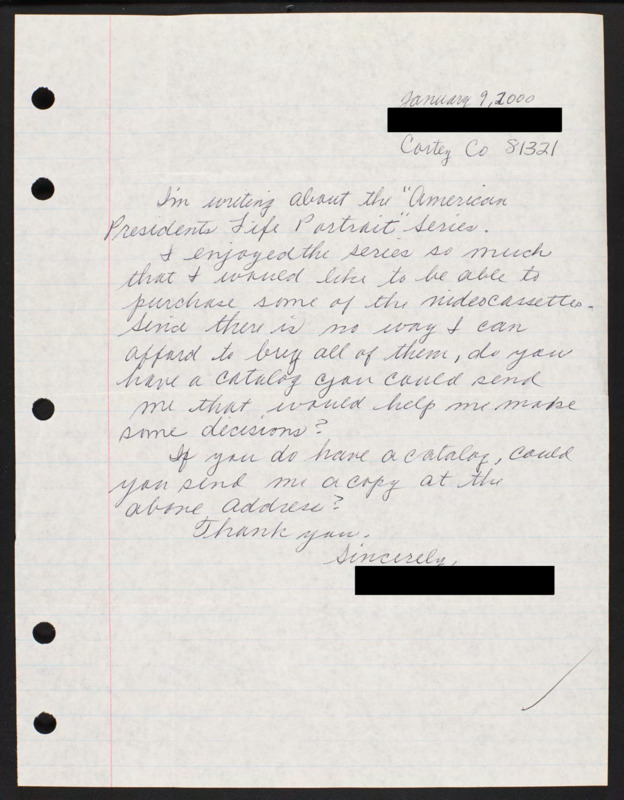 January 9, 2000
Cortez Co 81321
I'm writing about the "American
Presidents Life Portrait" series.
I enjoyed the series so much
that I would like to be able to
purchase some of the videocassettes.
Sinc there is no way I can
afford to buy all of them, do you
have a catalog you could send
me that would help me make
some decisions?
If you do have a catalog, could
you send me a copy at the
above address?
Thank you.
Sincerely,